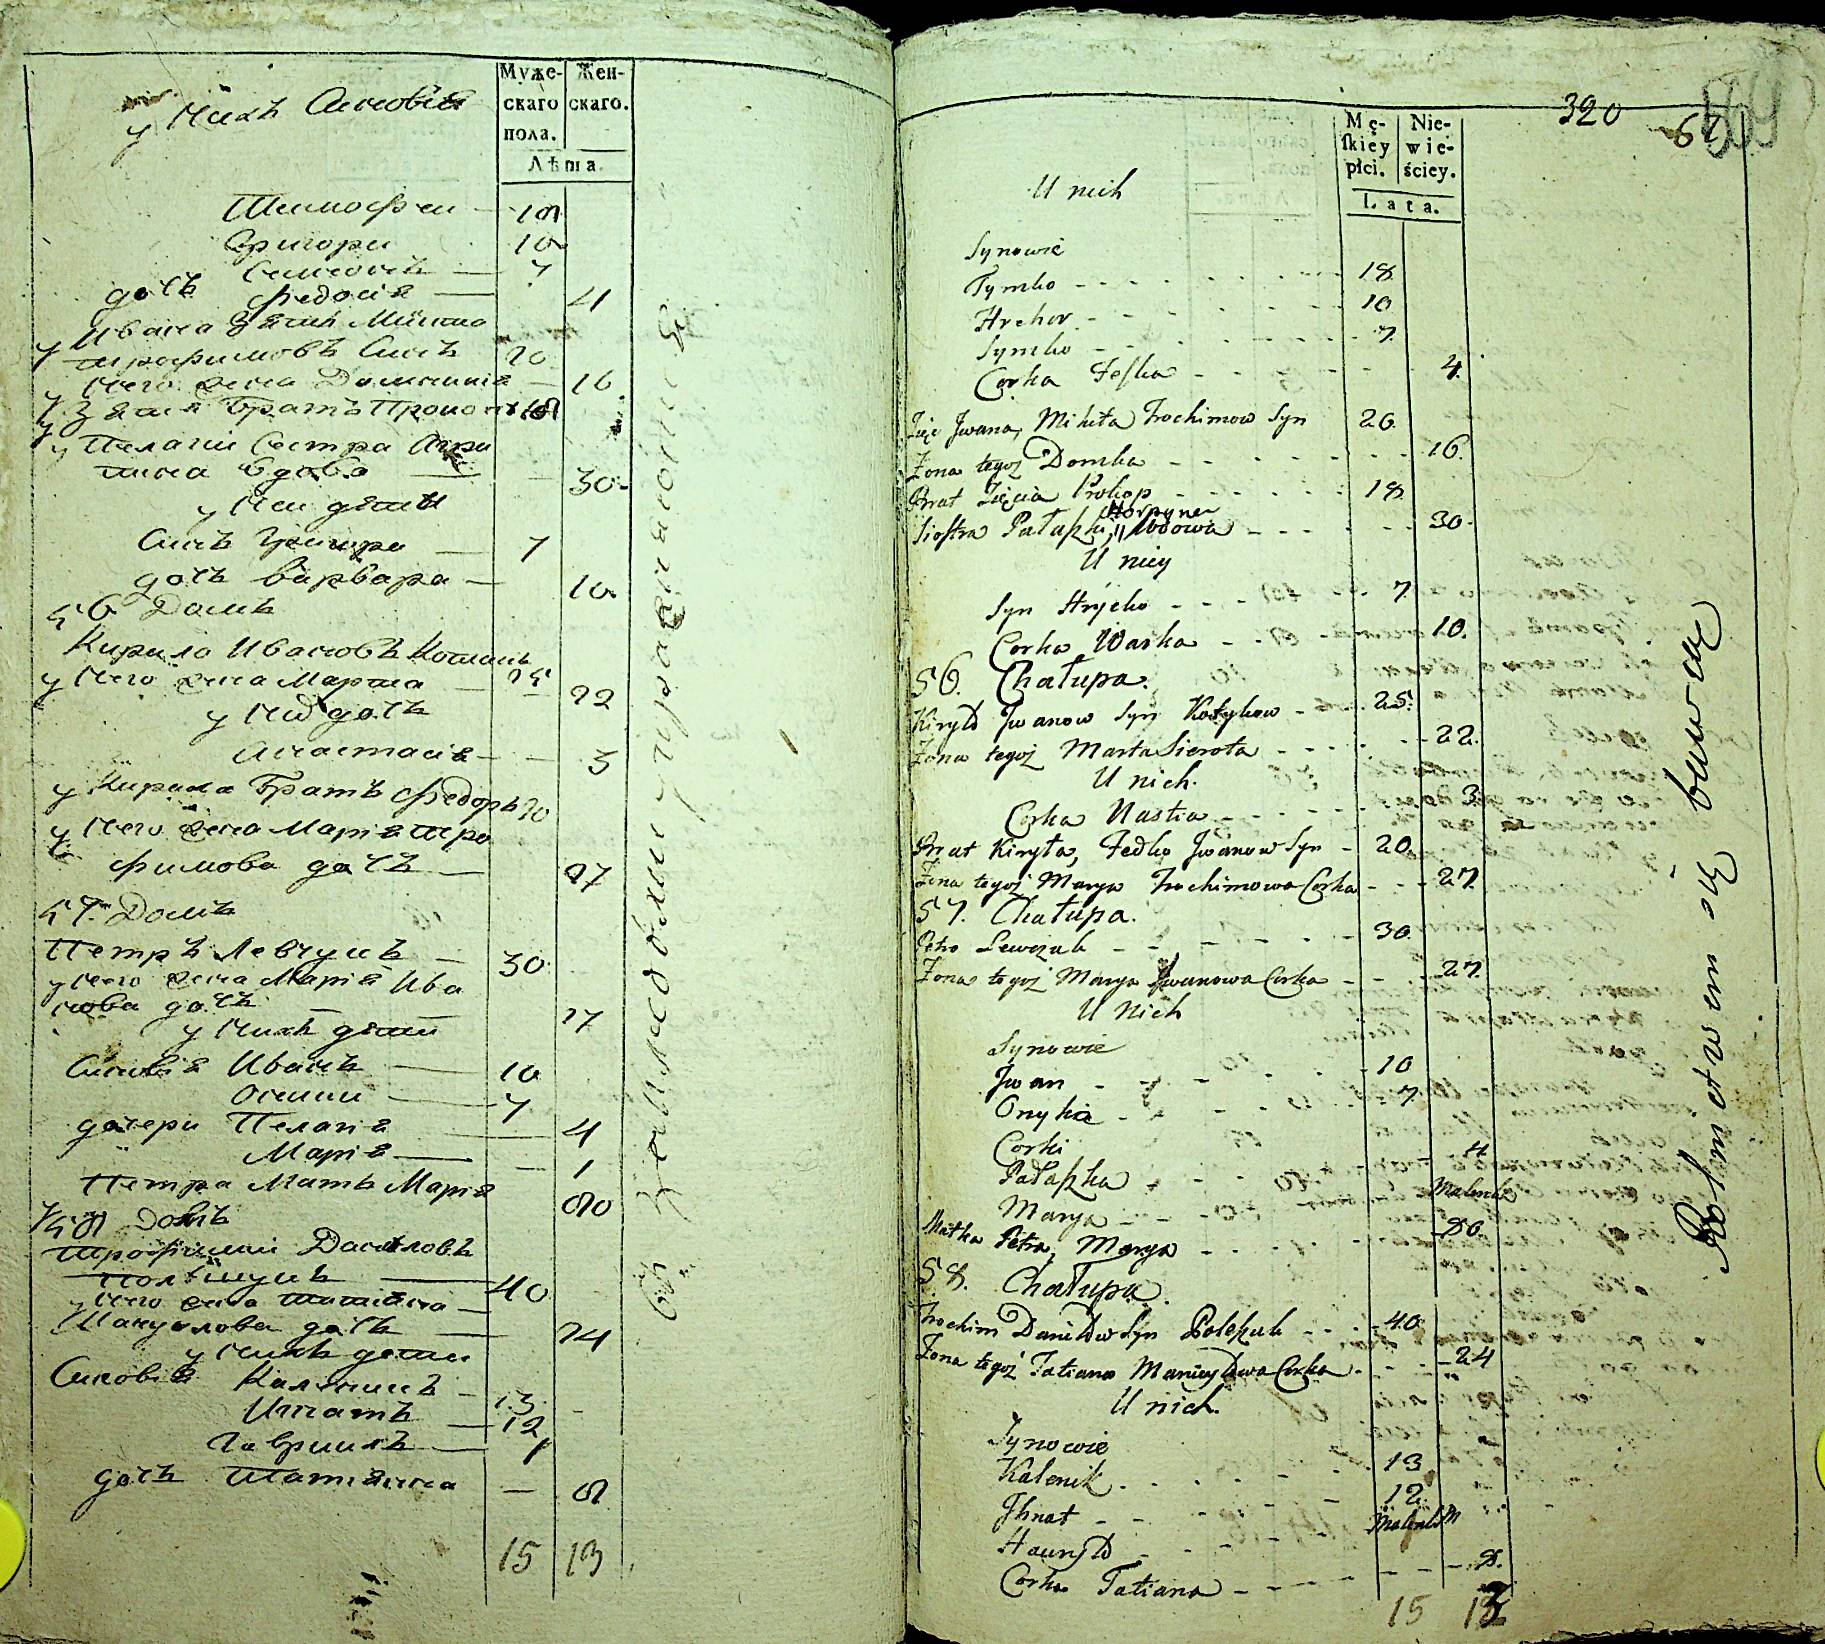 Муже- Жен-
скаго скаго.
пола.
Лѣта.
у нихъ Синовія
Тимофеи 18
Григори 10
Симонъ 7
дочъ Федосія 4
у Ивана Зять Микита
Трофимовъ Синъ 20
у него жена Домникія 16
у Зятя Братъ Прокопъ 18
у Пелагіи Сестра Агри
пина вдова 30
у неи дѣти
Синъ Григори 7
дочъ Варвара 10
56 Домъ
Кирило Ивановъ
у него жена Марта 25 22
у нихъ дочъ
Анастасія 3
у Кирила Братъ Федоръ 20
у него жена Марія Тро
фимова дочъ 27
57 Домъ
Петръ Левчукъ 30
у него жена Марія Ива
нова дочъ 27
у нихъ дѣти
Синовія Иванъ 10
7
дочери Пелагія 4
Марія 1
Петра Мать Марія 80
58 Домъ
Трофимъ Даниловъ
Полѣщукъ 40
у него жена Татіяна
Мануилова дочъ 24
у нихъ дѣти
Синовія Калиникъ 13
Игнатъ 12
Гавриилъ 1
дочъ Татіяна 8
15 13
320
Mę- Nie-
skiey wie-
płci. ściey.
Lata.
U nich
Synowie
Tymko 18
Hrehor 10
Symko 7
Corka Feska 4.
Zięć Jwana, Mikita Trochimow Syn 20
Żona tegoż Domka 16.
Brat Zięcia Prokop 18
Horpyna
Siostra Pałaszki, Wdowa 30.
U niey
Syn Hryćko 7
Corka Warka 10.
56. Chałupa.
Kiryło Jwanow Syn Kotykow 25.
Żona tegoż Marta Sierota 22.
U nich.
Corka Nastia 3.
Brat Kiryła, Fedko Jwanow Syn 20.
Żona tegoż Marya Trochimowa Corka 27.
57. Chałupa.
Petro Lewczuk 30.
Żona tegoż Marya Jwanowa Corka 27.
U Nich
Synowie
Jwan 10
Onyśko 7
Corki
Pałaszka 4
Marya Malenka
Matka Petra, Marya 80.
58. Chałupa.
Trochim Daniłow Syn Poleszuk 40.
Żona tegoż Tatiana Manuyłowa Corka 24
U nich.
Synowie
Kalenik 13
Jhnat 12.
Hauryło Malenki
Corka Tatiana 8.
15 13